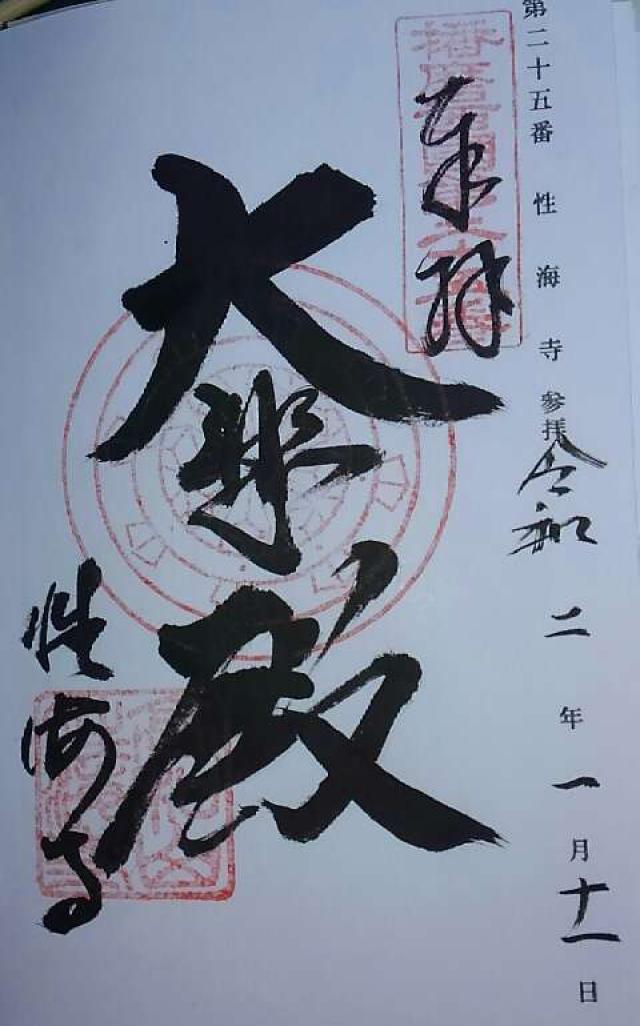 第二十五番 性海寺 参拝 令和二年一月十一日
奉拝
大悲殿
性海寺